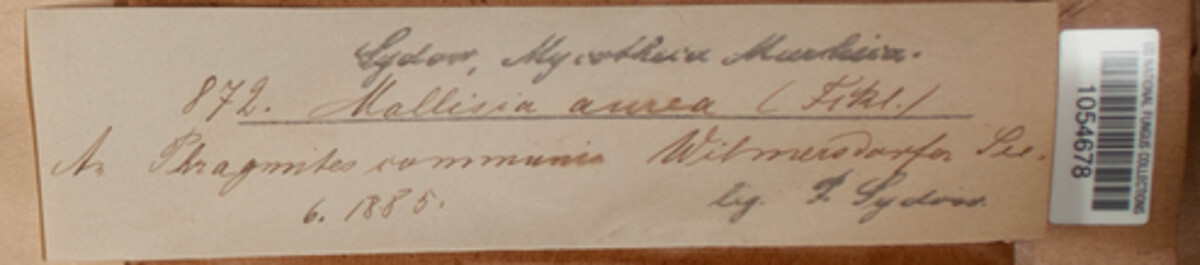 Sydow, Mycotheca Marchica.
872. Mollisia aurea (Fckl.)
An Phragmites communis Wilmersdorfer See.
6. 1885.
leg. P. Sydow.
US NATIONAL FUNGUS COLLECTIONS
1054678